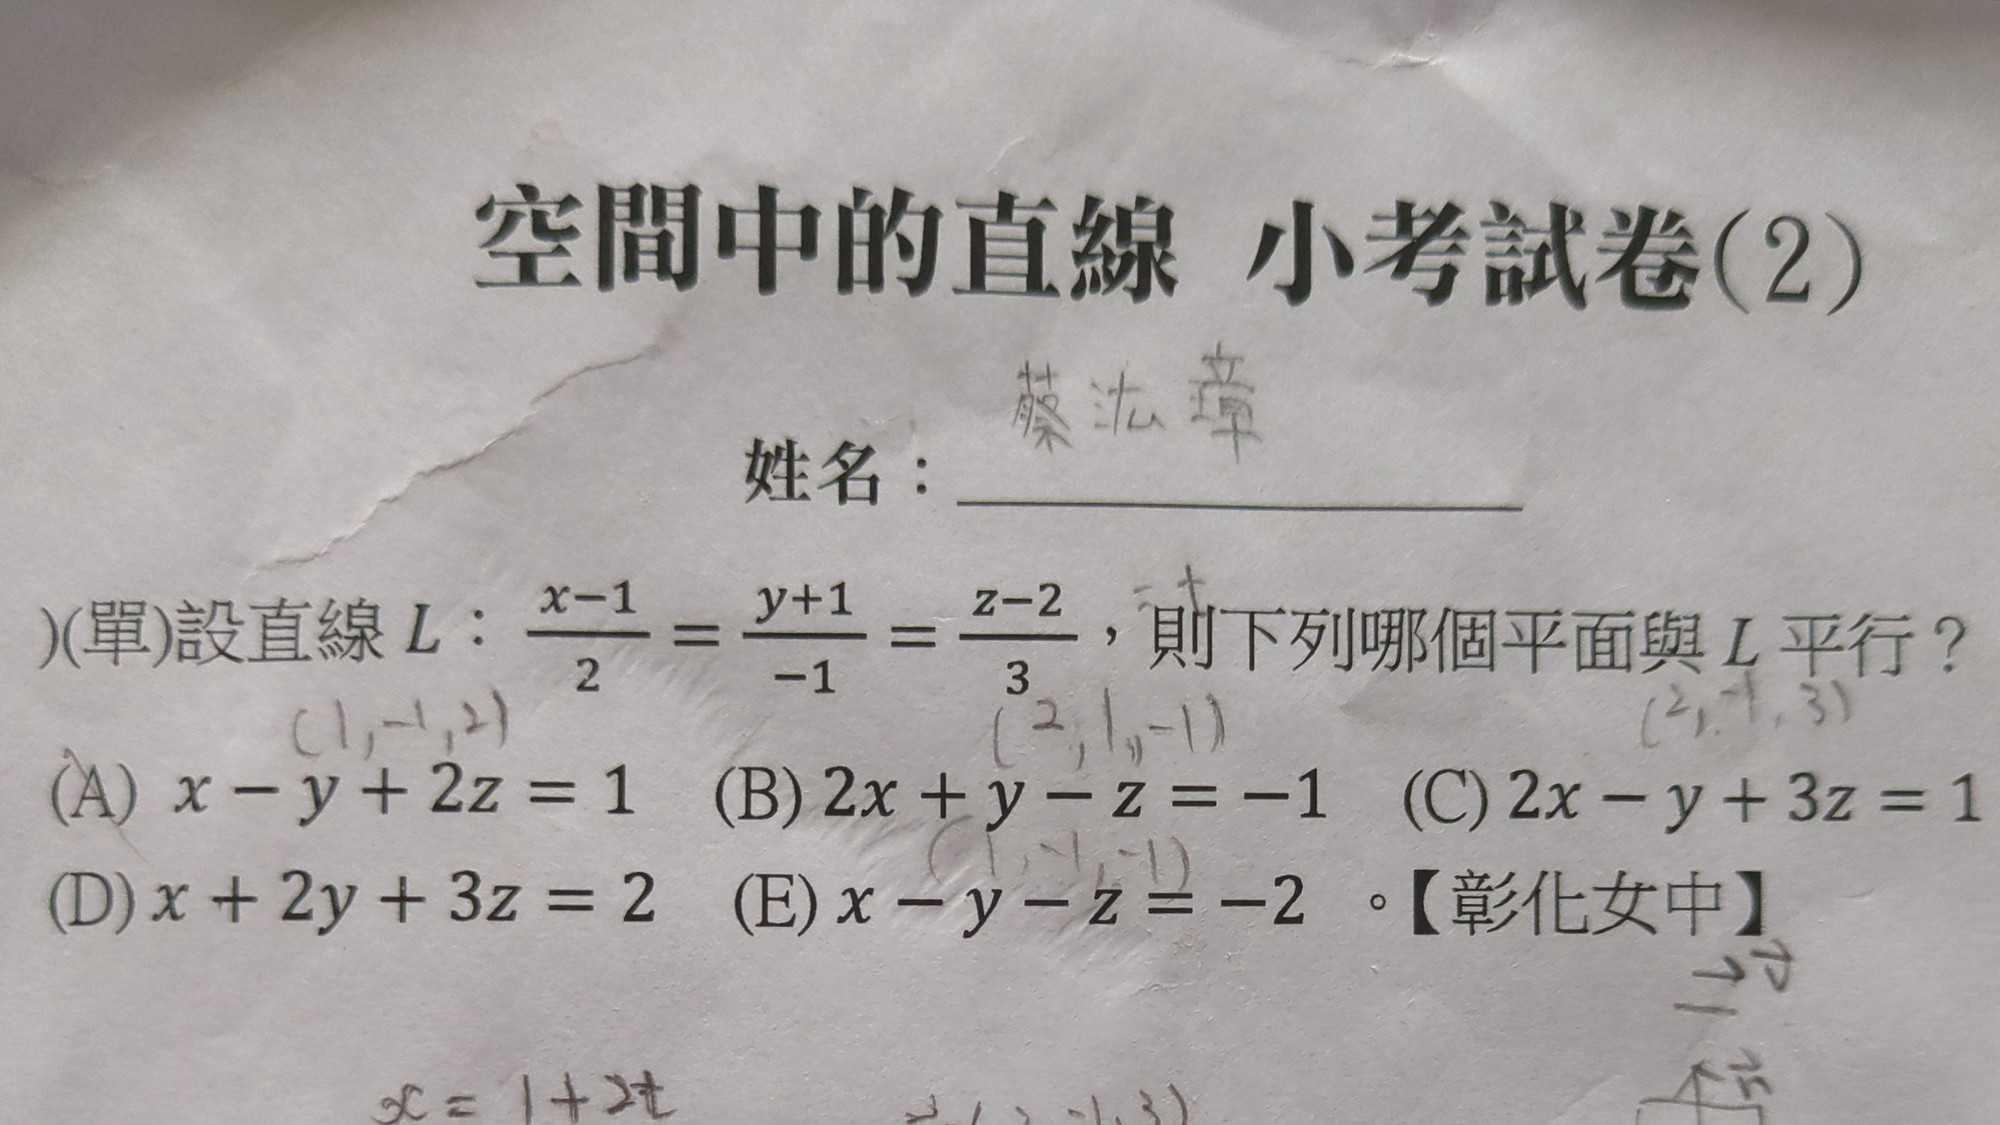 空間中的直線 小考試卷(2)
蔡浤璋
姓名：
)(單)設直線 L： x−1/2 = y+1/−1 = z−2/3，則下列哪個平面與 L 平行？
(1,-1,2) (2,1,-1) (2,-1,3)
(A) x − y + 2z = 1 (B) 2x + y − z = −1 (C) 2x − y + 3z = 1
(1,-1,-1)
(D) x + 2y + 3z = 2 (E) x − y − z = −2 。【彰化女中】
x = 1+2t